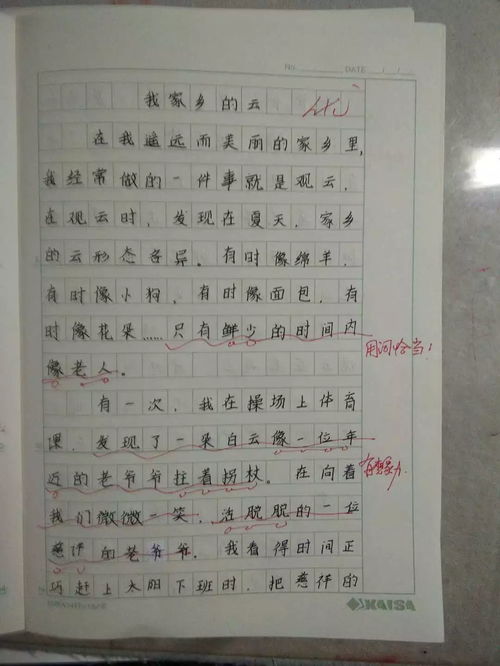 No. DATE / /
我家乡的云 优
在我遥远而美丽的家乡里，
我经常做的一件事就是观云，
在观云时，发现在夏天，家乡
的云形态各异。有时像绵羊，
有时像小狗，有时像面包，有
时像花朵……只有鲜少的时间内
用词恰当！
像老人。
有一次，我在操场上体育
课，发现了一朵白云像一位年
近的老爷爷拄着拐杖。在向着
有想象力
我们微微一笑，活脱脱的一位
慈祥的老爷爷。我看得时间正
巧赶上太阳下班时，把慈祥的
KAISA